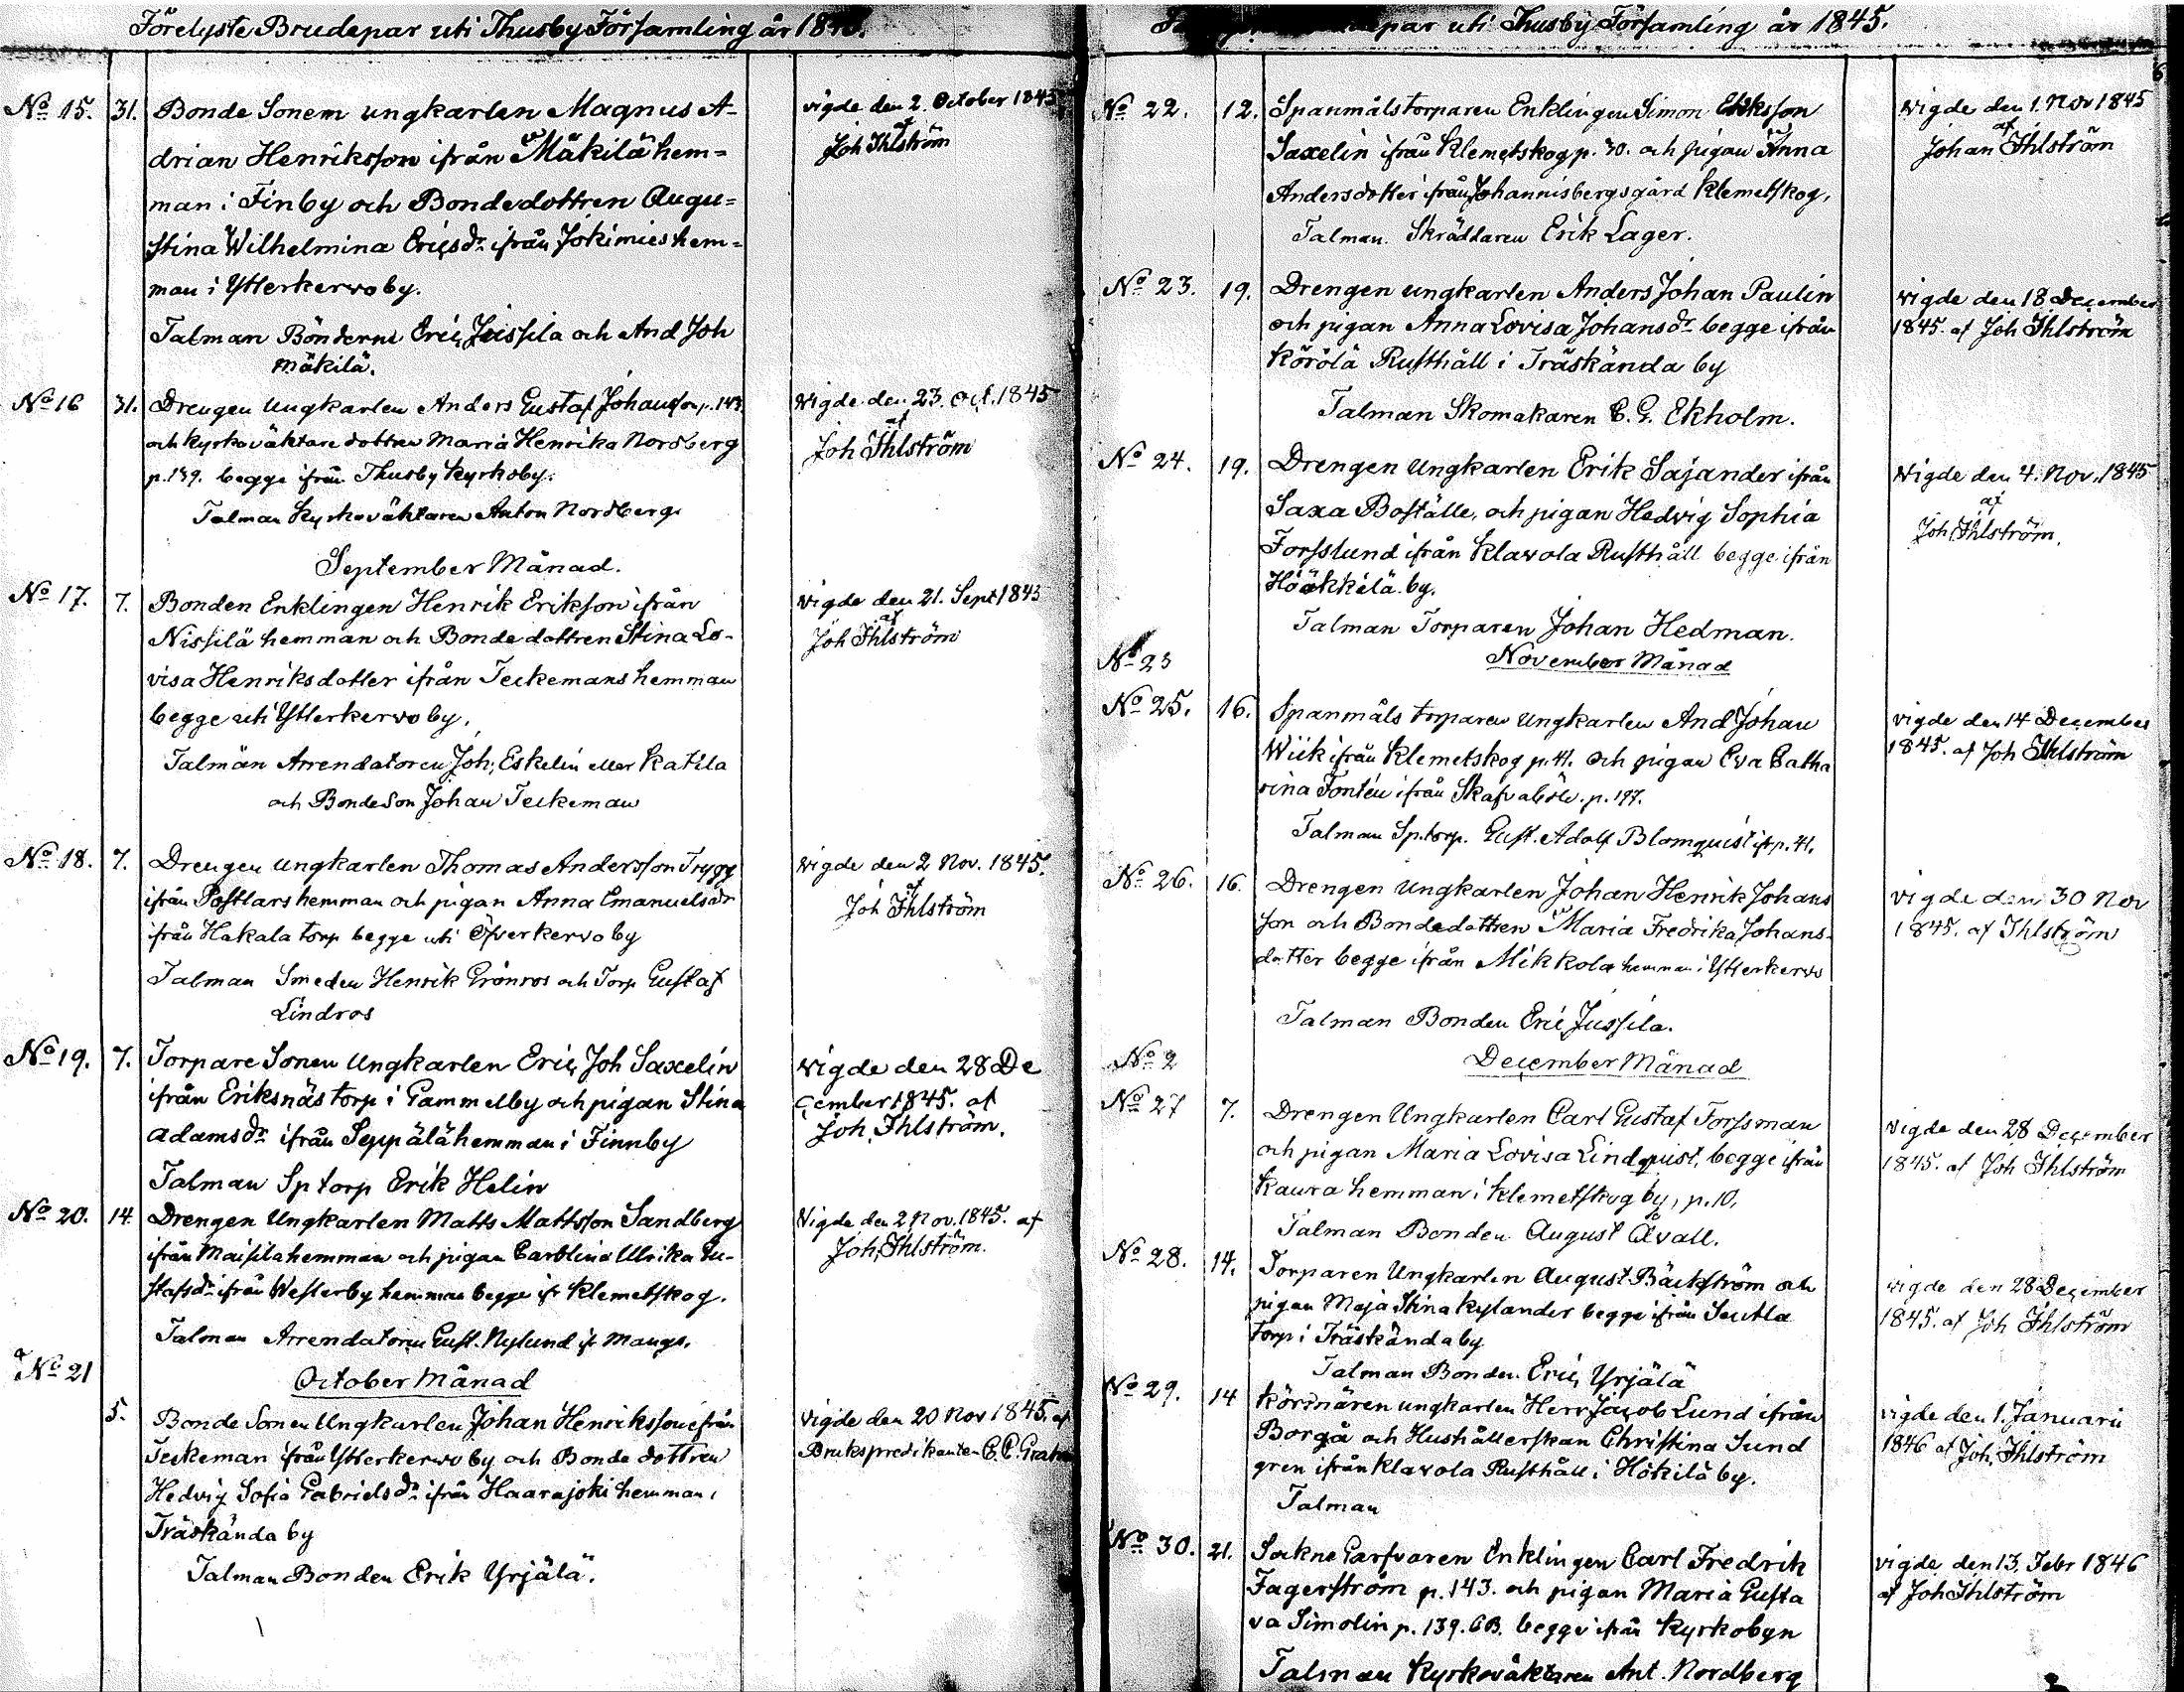 Förelyste Brudepar uti Thusby Församling år 1845.
No 15. 31. Bonde Sonem ungkarlen Magnus A-
drian Henriksson ifrån Mäkilä hem=
man i Finby och Bondedottren Augu=
stina Wilhelmina Ericsdr ifrån Jokimies hem=
man i Ytterkervo by.
Talman Bönderne Eric Jussila och And Joh
Mäkilä.
vigde den 2. October 1845
af
Joh Ihlström
No 16 31. Drengen Ungkarlen Anders Gustaf Johansson p. 143
och Kyrkoväktare dottren Maria Henrika Nordberg
p. 139. begge ifrån Thusby Kyrkoby.
Talman Kyrkoväktaren Anton Nordberg
vigde den 23. Oct. 1845
af
Joh Ihlström
September Månad.
No 17. 7. Bonden Enklingen Henrik Erikson ifrån
Nissilä hemman och Bonde dottren Stina Lo-
visa Henriksdotter ifrån Teckemans hemman
begge uti Ytterkervo by.
Talmän Arrendatoren Joh. Eskelin eller Katila
och BondeSon Johan Teckeman
vigde den 21. Sept 1845
af
Joh Ihlström
No 18. 7. Drengen ungkarlen Thomas Andersson Trygg
ifrån Postlars hemman och pigan Anna Emanuelsdr
ifrån Hakala torp begge uti Öfverkervo by
Talman Smeden Henrik Grönros och Torp Gustaf
Lindros
vigde den 2 Nov. 1845.
af
Joh Ihlström
No 19. 7. Torpare Sonen Ungkarlen Eric Joh Saxelin
ifrån Eriksnäs torp i Gammelby och pigan Stina
Adamsdr ifrån Seppälä hemman i Finnby
Talman Sp torp Erik Helin
vigde den 28 De
cember 1845. af
Joh. Ihlström.
No 20. 14. Drengen Ungkarlen Matts Mattsson Sandberg
ifrån Maisila hemman och pigan Carolina Ulrika Gu-
stafsdr ifrån Westerby hemman begge ifr Klemetskog.
Talman Arrendatoren Gust. Nylund ifr Mangs.
Vigde den 2 Nov. 1845. af
Joh. Ihlström.
No 21
October Månad
5. Bonde Sonen Ungkarlen Johan Henriksson ifrån
Teckeman ifrån Ytterkervo by och Bonde dottren
Hedvig Sofia Gabrielsdr ifrån Haarajoki hemman i
Träskända by
Talman Bonden Erik Yrjälä.
vigde den 20 Nov 1845. af
Brukspredikanten
par uti Thusby Församling år 1845.
No 22. 12. Spanmålstorparen Enklingen Simon Eriksson
Saxelin ifrån Klemetskog p. 30. och pigan Anna
Andersdotter ifrån Johannisbergs gård Klemetskog,
Talman. Skräddaren Erik Lager.
vigde den 1. Nov 1845
af
Johan Ihlström
No 23. 19. Drengen ungkarlen Anders Johan Paulin
och pigan Anna Lovisa Johansdr begge ifrån
Körölä Rusthåll i Träskända by
Talman Skomakaren C. G. Ekholm.
vigde den 18 December
1845. af Joh Ihlström
No 24. 19. Drengen Ungkarlen Erik Sajander ifrån
Saxa Boställe, och pigan Hedvig Sophia
Forsslund ifrån Klavola Rusthåll begge ifrån
Höäkkilä by.
Talman Torparen Johan Hedman.
Vigde den 4. Nov. 1845
af
Joh, Ihlström.
No 25
November Månad
No 25. 16. Spanmåls torparen ungkarlen And Johan
Wiik ifrån Klemetskog p. 41. och pigan Eva Catha
rina Fontén ifrån Skafvaböle. p. 197.
Talman Sp.torp. Gust. Adolf Blomquist ifr p. 41.
vigde den 14 December
1845. af Joh Ihlström
No 26. 16. Drengen Ungkarlen Johan Henrik Johans
son och Bondedottren Maria Fredrika Johans-
dotter begge ifrån Mikkola hemman i Ytterkervo
Talman Bonden Eric Jussila.
vigde den 30 Nov
1845. af Ihlström
No 2
December Månad
No 27 7. Drengen Ungkarlen Carl Gustaf Forssman
och pigan Maria Lovisa Lindquist, begge ifrån
Kaura hemman i Klemetskog by, p. 10.
Talman Bonden August Åvall.
vigde den 28 December
1845. af Joh Ihlström
No 28. 14. Torparen Ungkarlen August Bäckström och
pigan Maja Stina Kylander begge ifrån Seutla
torp i Träskända by
Talman Bonden Eric Yrjälä
vigde den 28 December
1845. af Joh Ihlström
No 29. 14 Körsnären ungkarlen Herr Jacob Lund ifrån
Borgå och Hushållerskan Christina Sund
gren ifrån Klavola Rusthåll i Hökilä by.
Talman
vigde den 1. Januarii
1846 af Joh. Ihlström
No 30. 21. Sockne Garfvaren Enklingen Carl Fredrik
Fagerström p. 143. och pigan Maria Gusta
va Simolin p. 139. CB. begge ifrån Kyrkobyn
Talman Kyrkoväktaren Ant. Nordberg
vigde den 13. Febr 1846
af Joh Ihlström